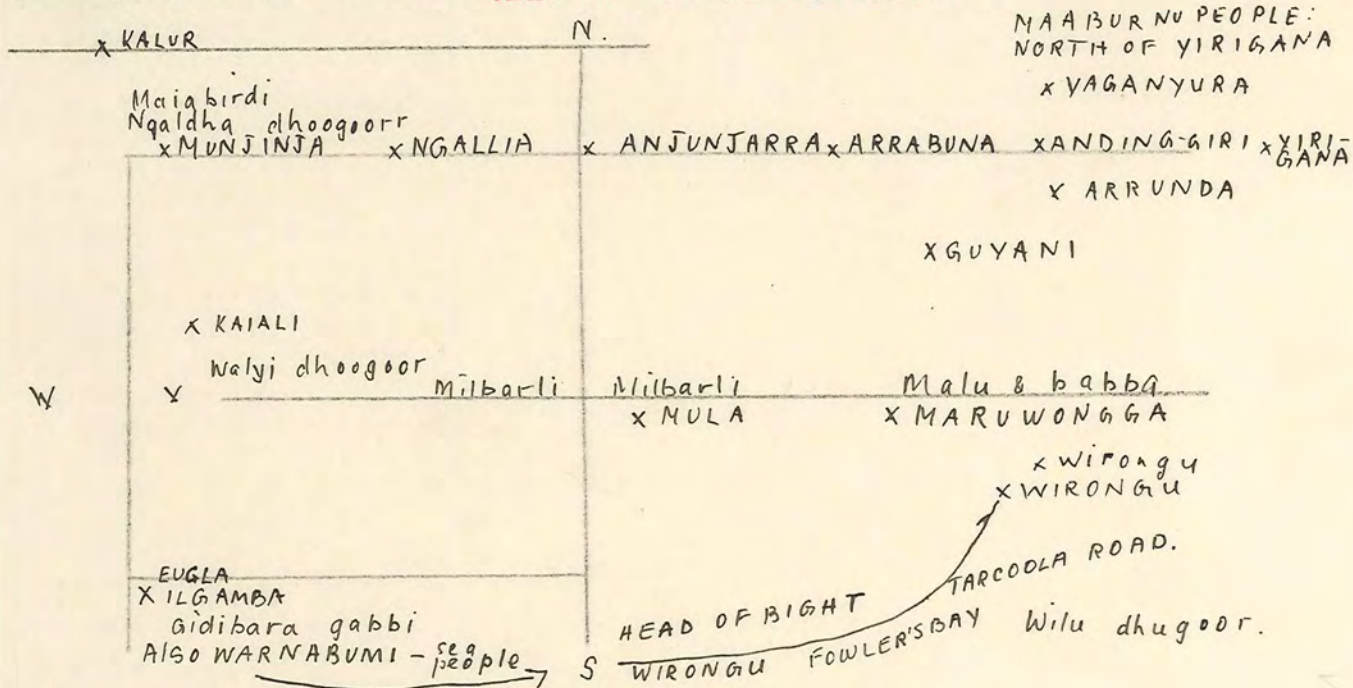 MAABURNU PEOPLE:
NORTH OF YIRIGANA
N.
x KALUR
x YAGANYURA
Maiabirdi
Ngaldha dhoogoorr
x MUNJINJA x NGALLIA x ANJUNJARRA x ARRABUNA x ANDING-GIRI x YIRI-
GANA
x ARRUNDA
x GUYANI
x KAIALI
Walyi dhoogoor
W x Milbarli Milbarli Malu & babba
x MULA x MARUWONGGA
x Wirongu
x WIRONGU
EUGLA
x ILGAMBA
Gidibara gabbi
ALSO WARNABUMI - sea
people
S
HEAD OF BIGHT
WIRONGU FOWLER'S BAY
TARCOOLA ROAD.
Wilu dhugoor.